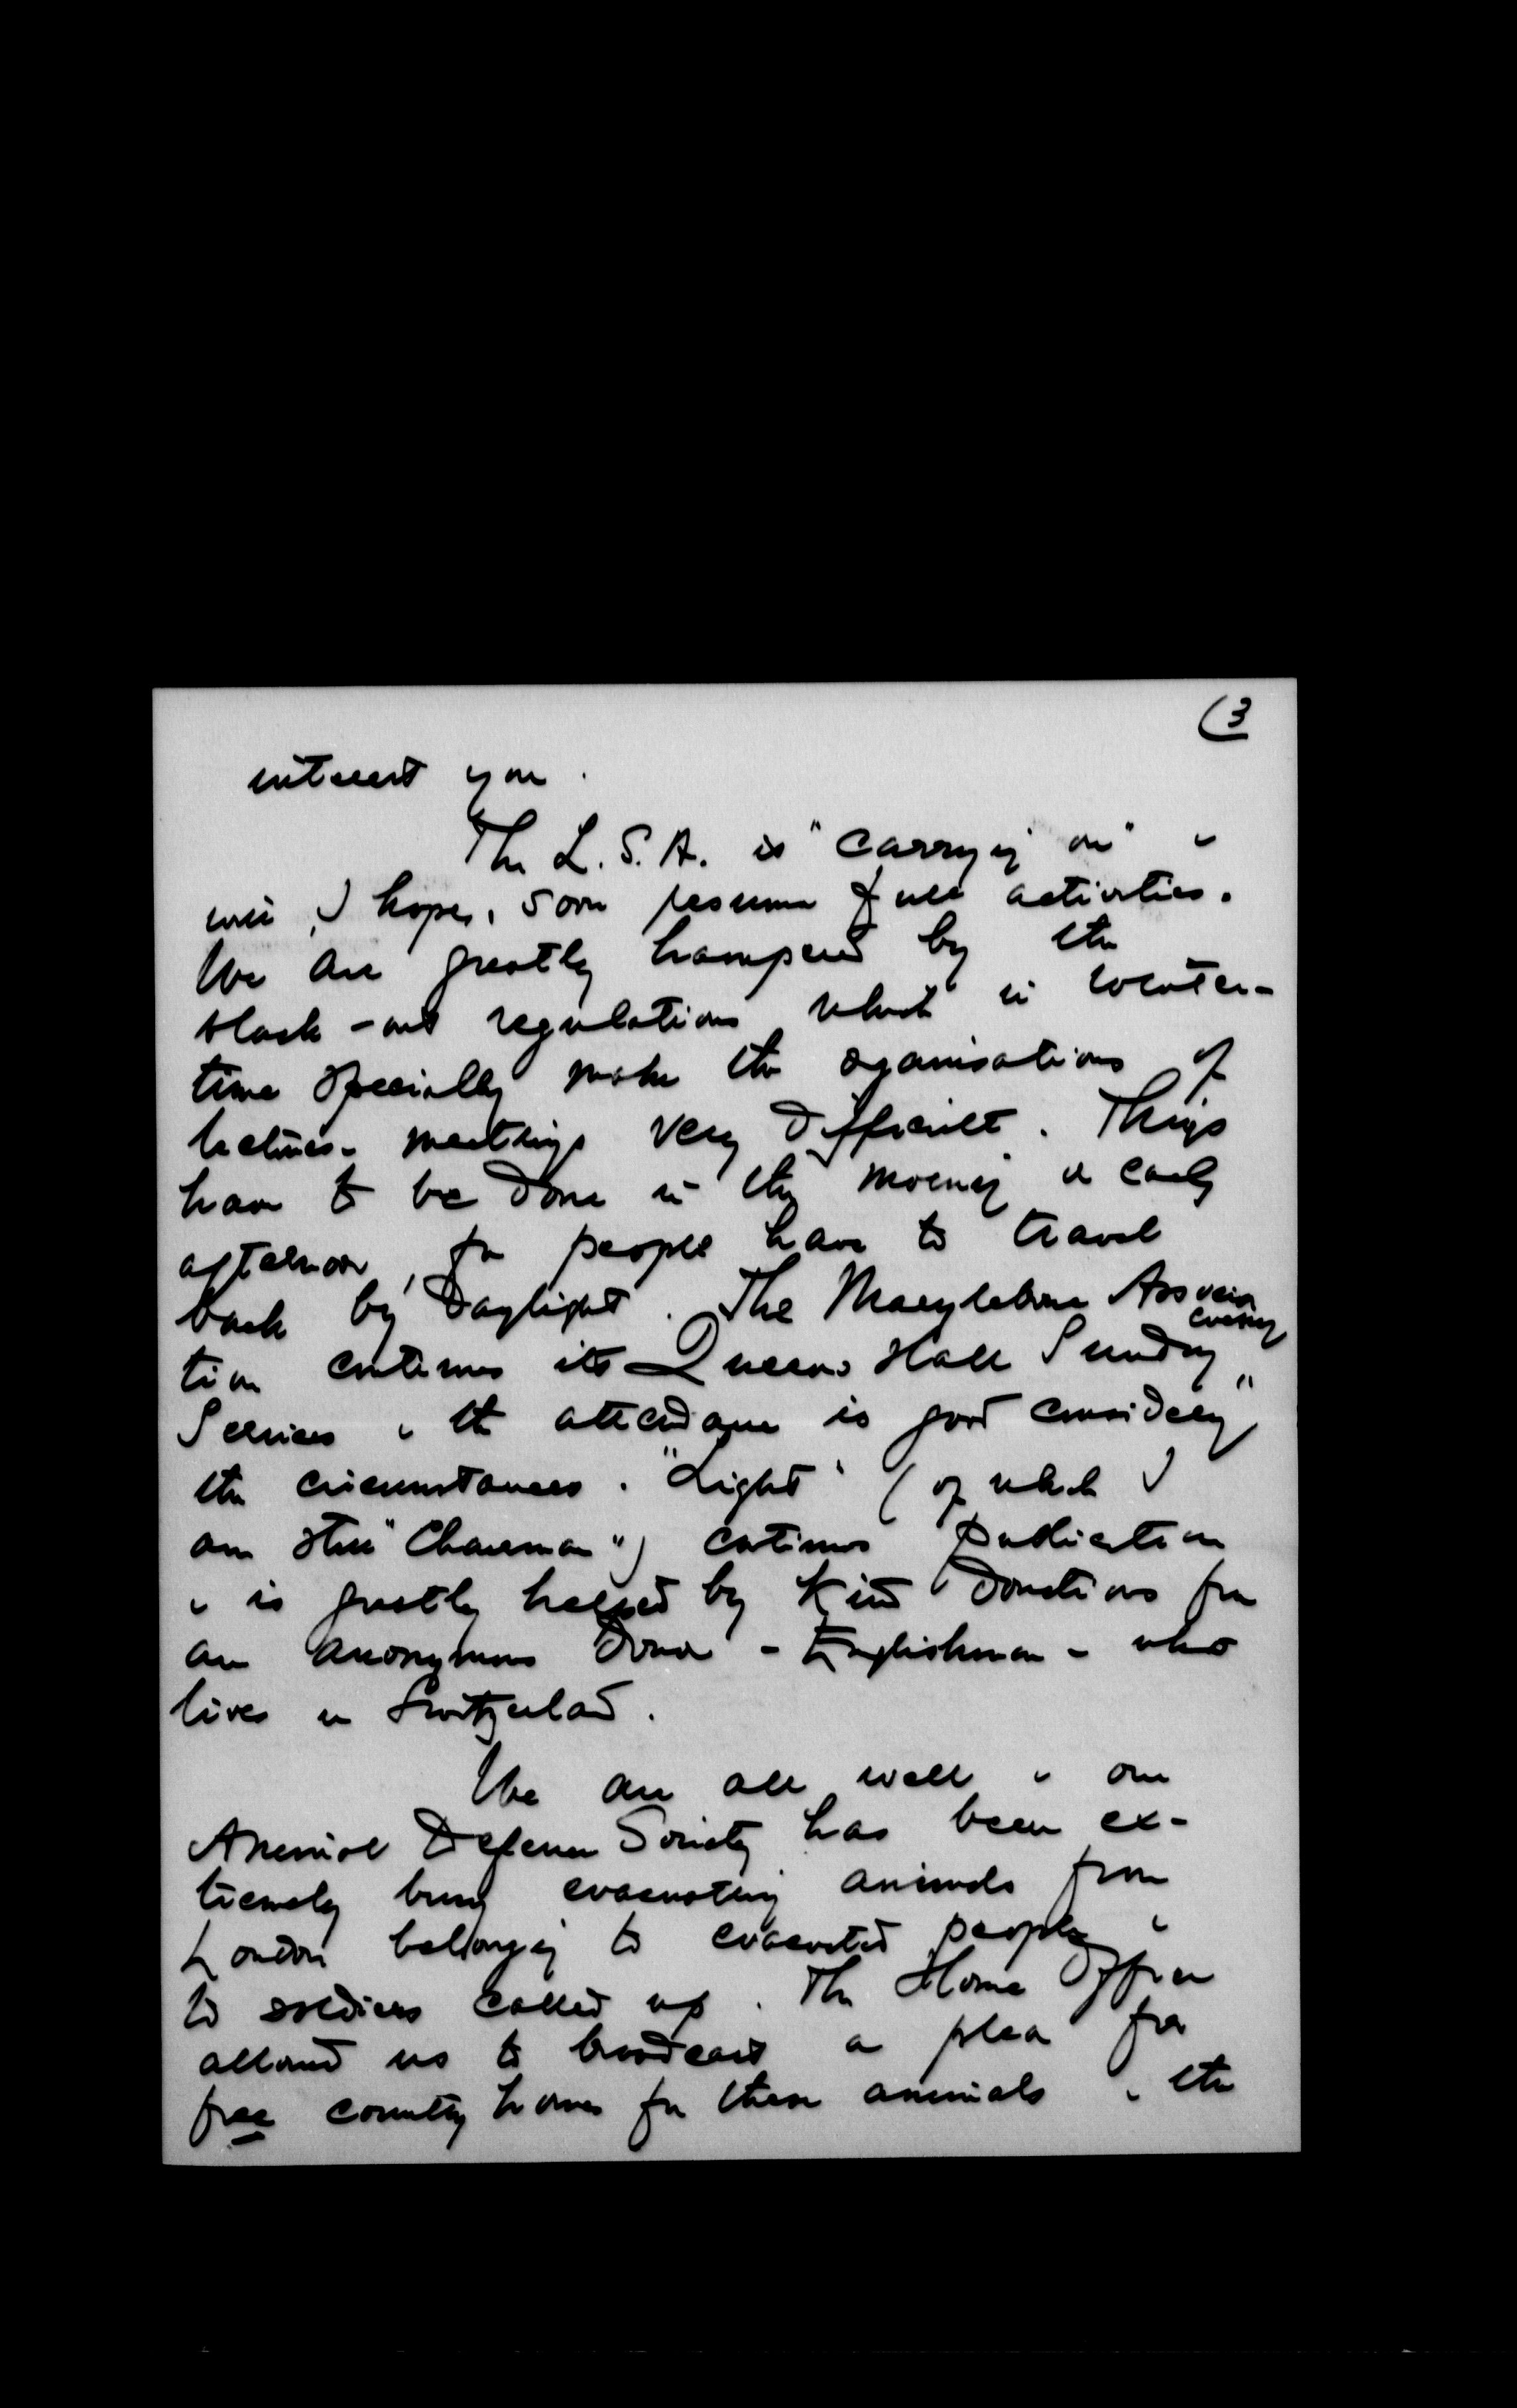 (3
interest you.
The L.S.A. is "carrying on" &
will, I hope, soon resume full activities.
We are greatly hampered by the
black-out regulations which in winter-
time specially make the organisations of
lectures - meetings very difficult. Things
have to be done in the morning or early
afternoon, for people have to travel
back by daylight. The Marylebone Associa
evening
tion continues its Queens Hall Sunday
Services & the attendance is good "considering"
the circumstances. "Light" (of which I
am still "Chairman") continues publication
& is greatly helped by kind donations from
an anonymous donor - Englishman - who
lives in Switzerland.
We are all well & our
Animal Defence Society has been ex-
tremely busy evacuating animals from
London belonging to evacuated people &
to soldiers called up. The Home Office
allowed us to broadcast a plea for
free country homes for these animals & the